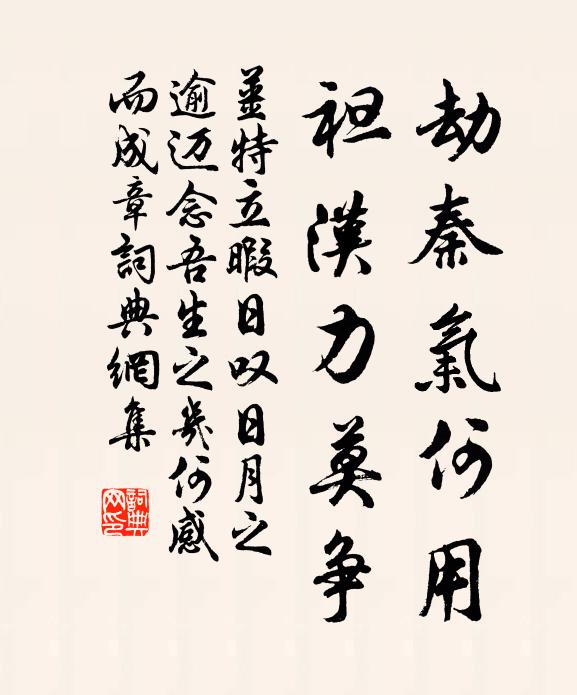 劫秦氣何用
袒漢力莫爭
薑特立暇日叹日月之
逾迈念吾生之幾何感
而成章詞典網集
詞典网印